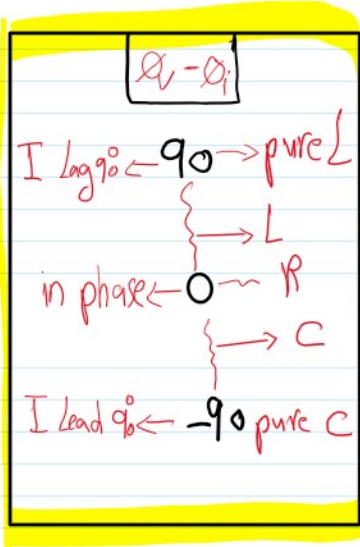 θv - θi
I Lag 90° ← 90 → pure L
→ L
in phase ← 0 ~ R
→ C
I Lead 90° ← -90 pure C